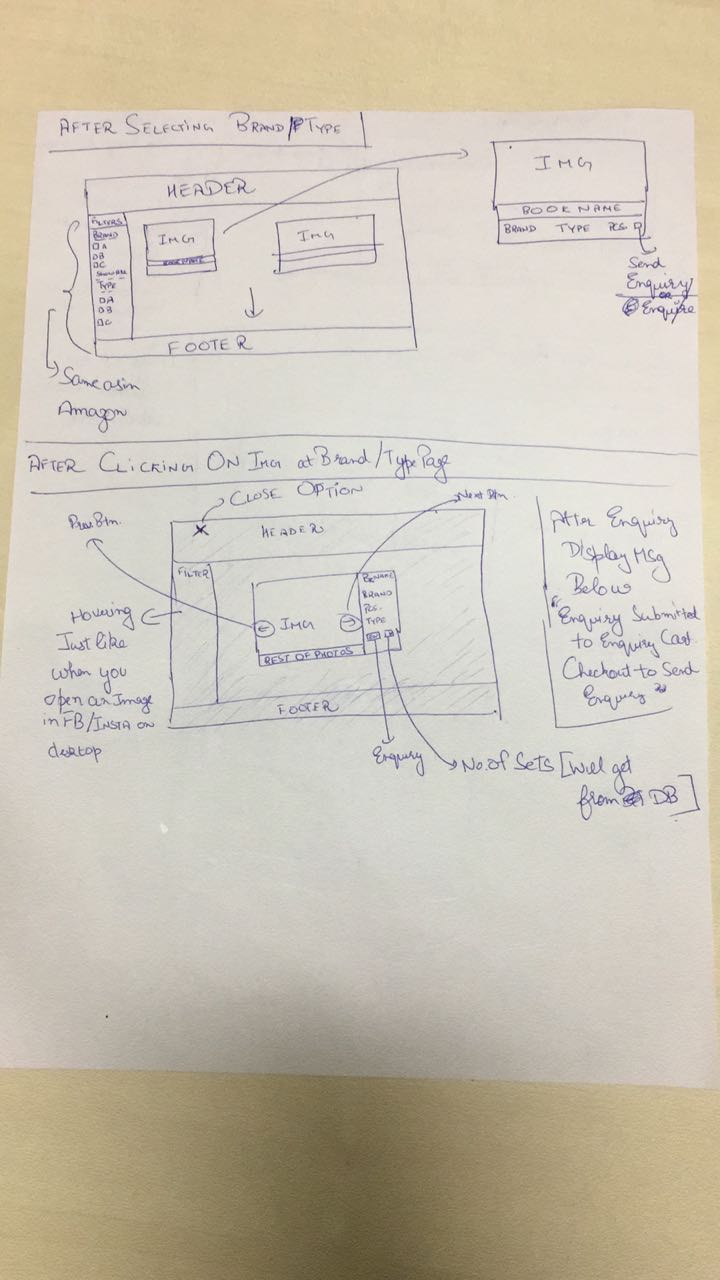 AFTER SELECTING BRAND/TYPE
HEADER
FILTERS
BRAND
A
B
C
SHOW ALL
TYPE
A
B
C
IMG
BOOK NAME
IMG
FOOTER
Same as in
Amazon
IMG
BOOK NAME
BRAND TYPE PCS.
Send
Enquiry
OR
Enquire
AFTER CLICKING ON IMG at Brand/Type Page
CLOSE OPTION
Prev Btn.
Next Btn.
HEADER
FILTER
IMG
B.NAME
BRAND
PCS.
TYPE
REST OF PHOTOS
FOOTER
Hovering
Just like
when you
open an Image
in FB/INSTA on
desktop
Enquiry
No. of Sets [Will get
from DB]
After Enquiry
Display Msg
Below
"Enquiry Submitted
to Enquiry Cart.
Checkout to Send
Enquiry"